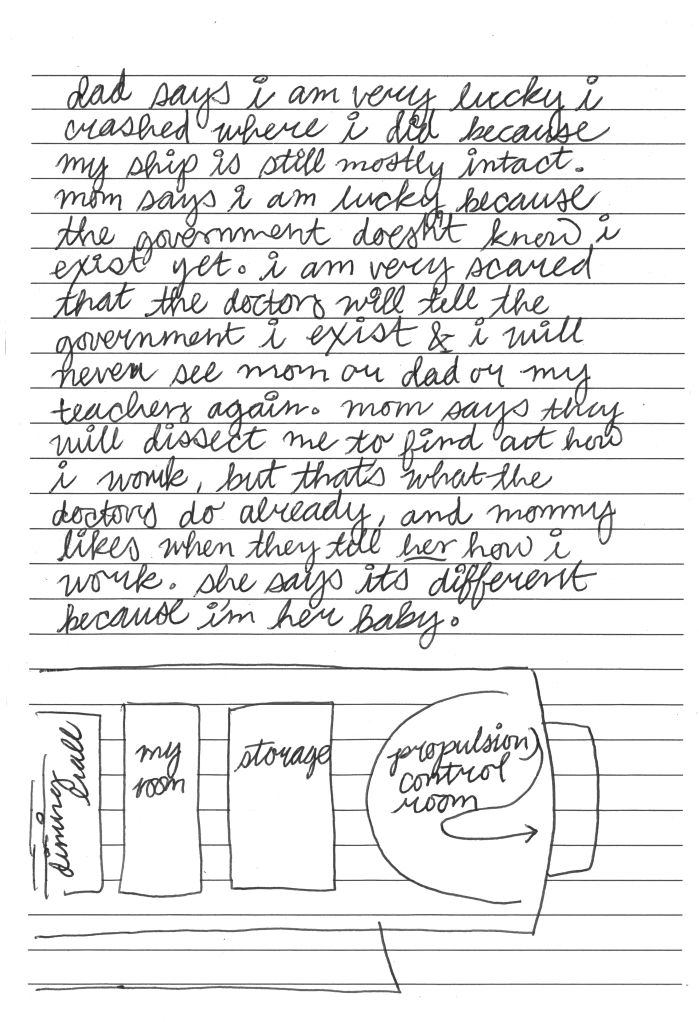 dad says i am very lucky i
crashed where i did because
my ship is still mostly intact.
mom says i am lucky because
the government doesn't know i
exist yet. i am very scared
that the doctors will tell the
government i exist & i will
never see mom or dad or my
teachers again. mom says they
will dissect me to find out how
i work, but that's what the
doctors do already, and mommy
likes when they tell her how i
work. she says its different
because i'm her baby.
dining hall
my
room
storage
propulsion
control
room